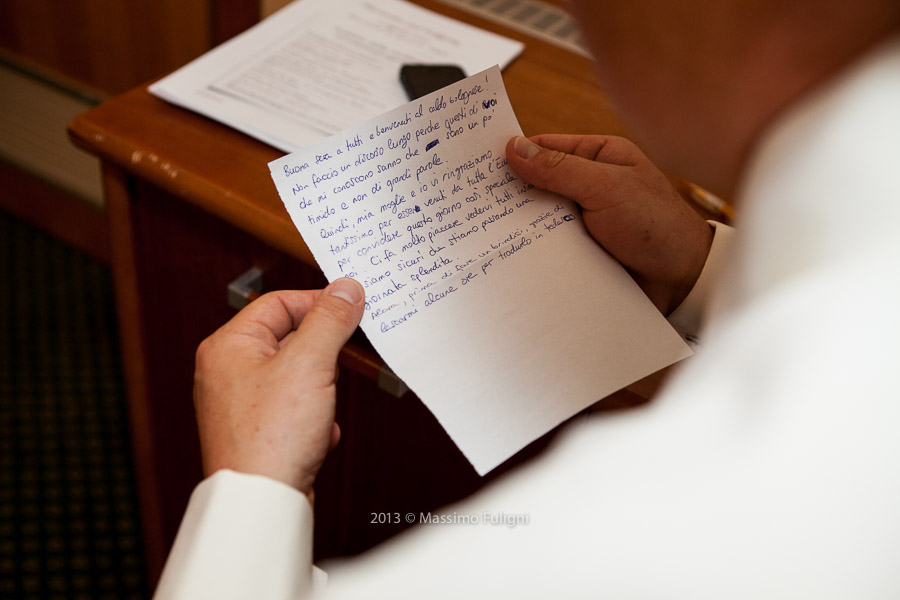 Buona sera a tutti e benvenuti al caldo bolognese!
Non faccio un discorso lungo perche questi di voi
che mi conoscono sanno che sono un po'
timido e non di grandi parole.
Quindi, mia moglie e io vi ringraziamo
tantissimo per essere venuti da tutta l'
per condividere questo giorno così speciale
noi. Ci fa molto piacere vedervi tutti
siamo sicuri che stiamo passando una
giornata splendita.
Allora, prima di fare un brindisi,
lasciarmi alcune ore per tradurlo in
2013 © Massimo Fuligni